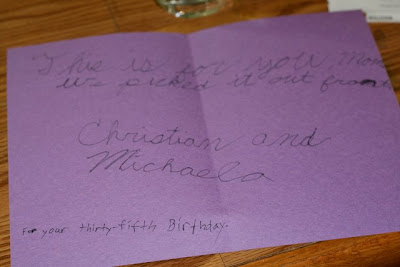 "This is for you, Mom
we picked it out front
Christian and
Michaela
For your thirty-fifth Birthday.